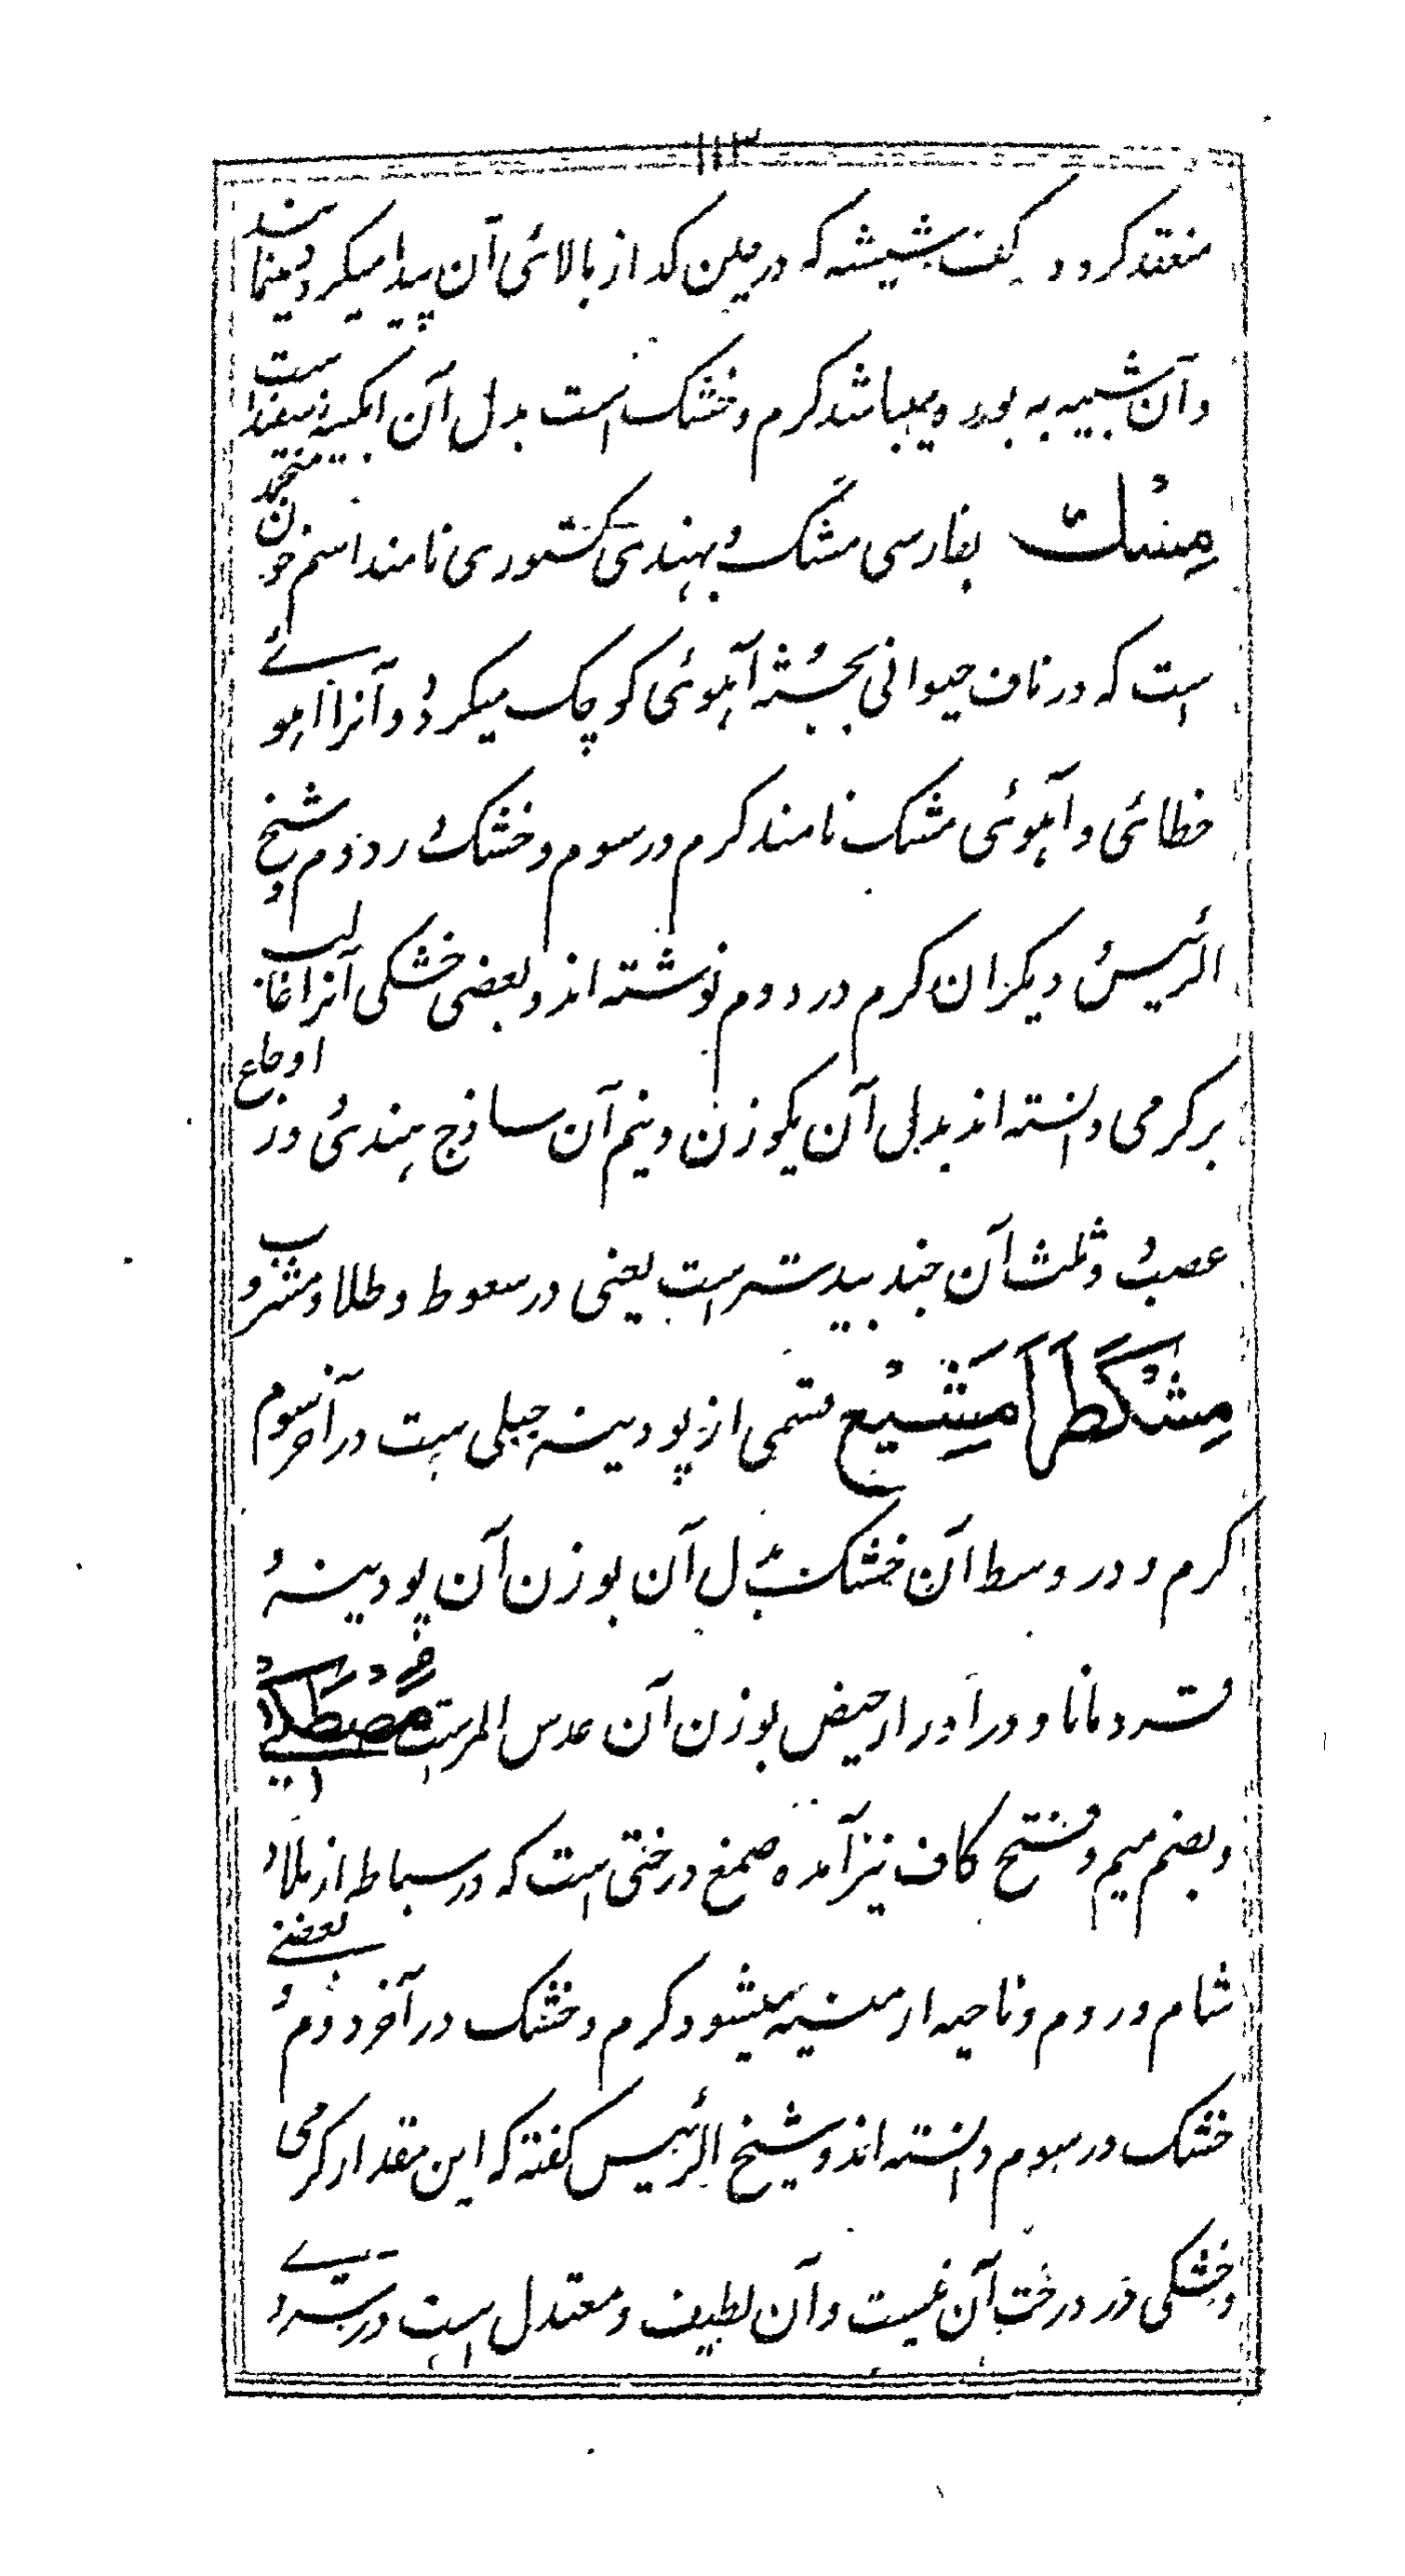 ۱۱۳
منعقد کرود و کف شیشه که در حین کداز بالائی آن پیدا میکردد مینمایند
و آن شبیه به بوره میباشد کرم و خشک است بدل آن ابکینه سفید است
مِسْك بفارسی مشک و بهندی کستوری نامند اسم خون منجمد
است که در ناف حیوانی بجثه آهوئی کوچک میکردد و آنرا آهوے
خطائی و آهوئی مشک نامند کرم در سوم و خشک در دوم و شیخ
الرئیس و دیکران کرم در دوم نوشته اند و بعضی خشکی آنرا غالب
بر کرمی دانسته اند بدل آن یکوزن و نیم آن ساذج هندی و در اوجاع
عصب و ثلث آن جند بیدستر است یعنی در سعوط و طلا و مشروب
مِشْكَطَرَامَشِيْع قسمی از پودینه جبلی ست در آخر سوم
کرم و در وسط آن خشک بدل آن بوزن آن پودینه و
قردمانا و در ادرار حیض بوزن آن عدس المرست مَصْطَكِے
و بضم میم و فتح کاف نیز آمده صمغ درختی است که در سباط از بلاد
شام و روم و ناحیه ارمنیه میشود کرم و خشک در آخر دوم و بعضے
خشک در سوم دانسته اند و شیخ الرئیس کفته که این مقدار کرمی
و خشکی در درخت آن نیست و آن لطیف و معتدل است در سردیے